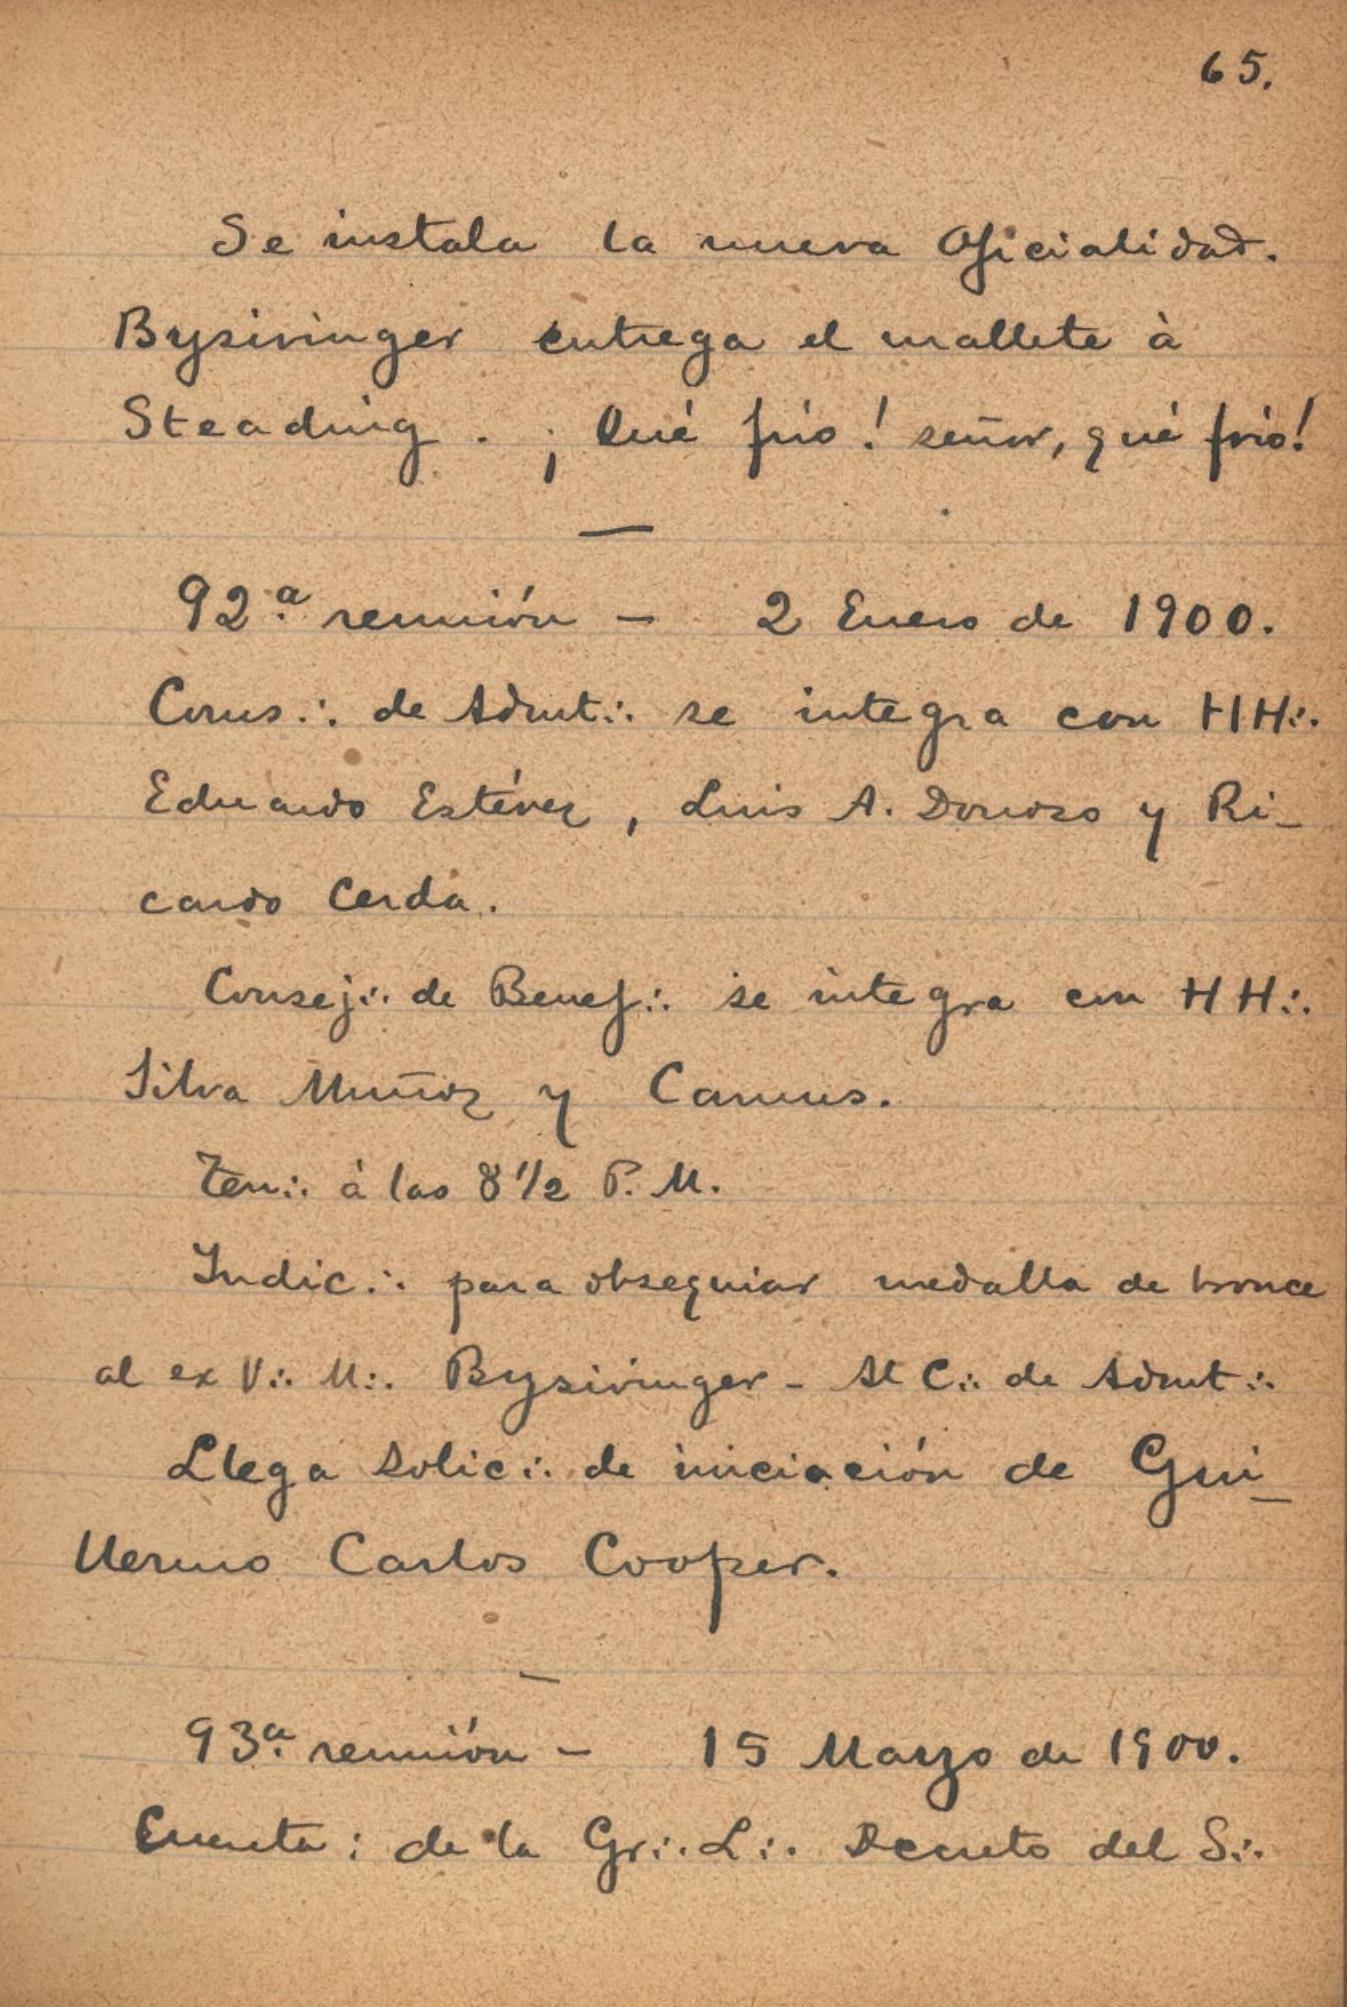 65.
Se instala la nueva Oficialidad.
Bysivinger entrega el mallete à
Steading. ¡Qué frío! señor, qué frío!
—
92.ª reunión — 2 Enero de 1900.
Coms∴ de Admt∴ se integra con HH∴
Eduardo Estévez, Luis A. Donoso y Ri-
cardo Cerda.
Consej∴ de Benef∴ se integra con HH∴
Silva Muñoz y Camus.
Ten∴ à las 8 1/2 P. M.
Indic∴ para obsequiar medalla de bronce
al ex V∴ M∴ Bysivinger - Al C∴ de Admt∴
Llega solic∴ de iniciación de Gui-
llermo Carlos Cooper.
—
93.ª reunión — 15 Marzo de 1900.
Cuenta: de la Gr∴ L∴ Decreto del S∴